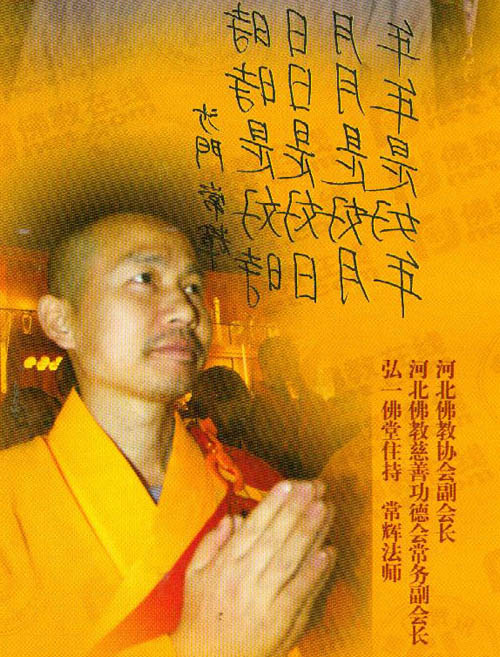 年年是好年
月月是好月
日日是好日
時時是好時
沙門 常輝
河北佛教协会副会长
河北佛教慈善功德会常务副会长
弘一佛堂住持 常辉法师